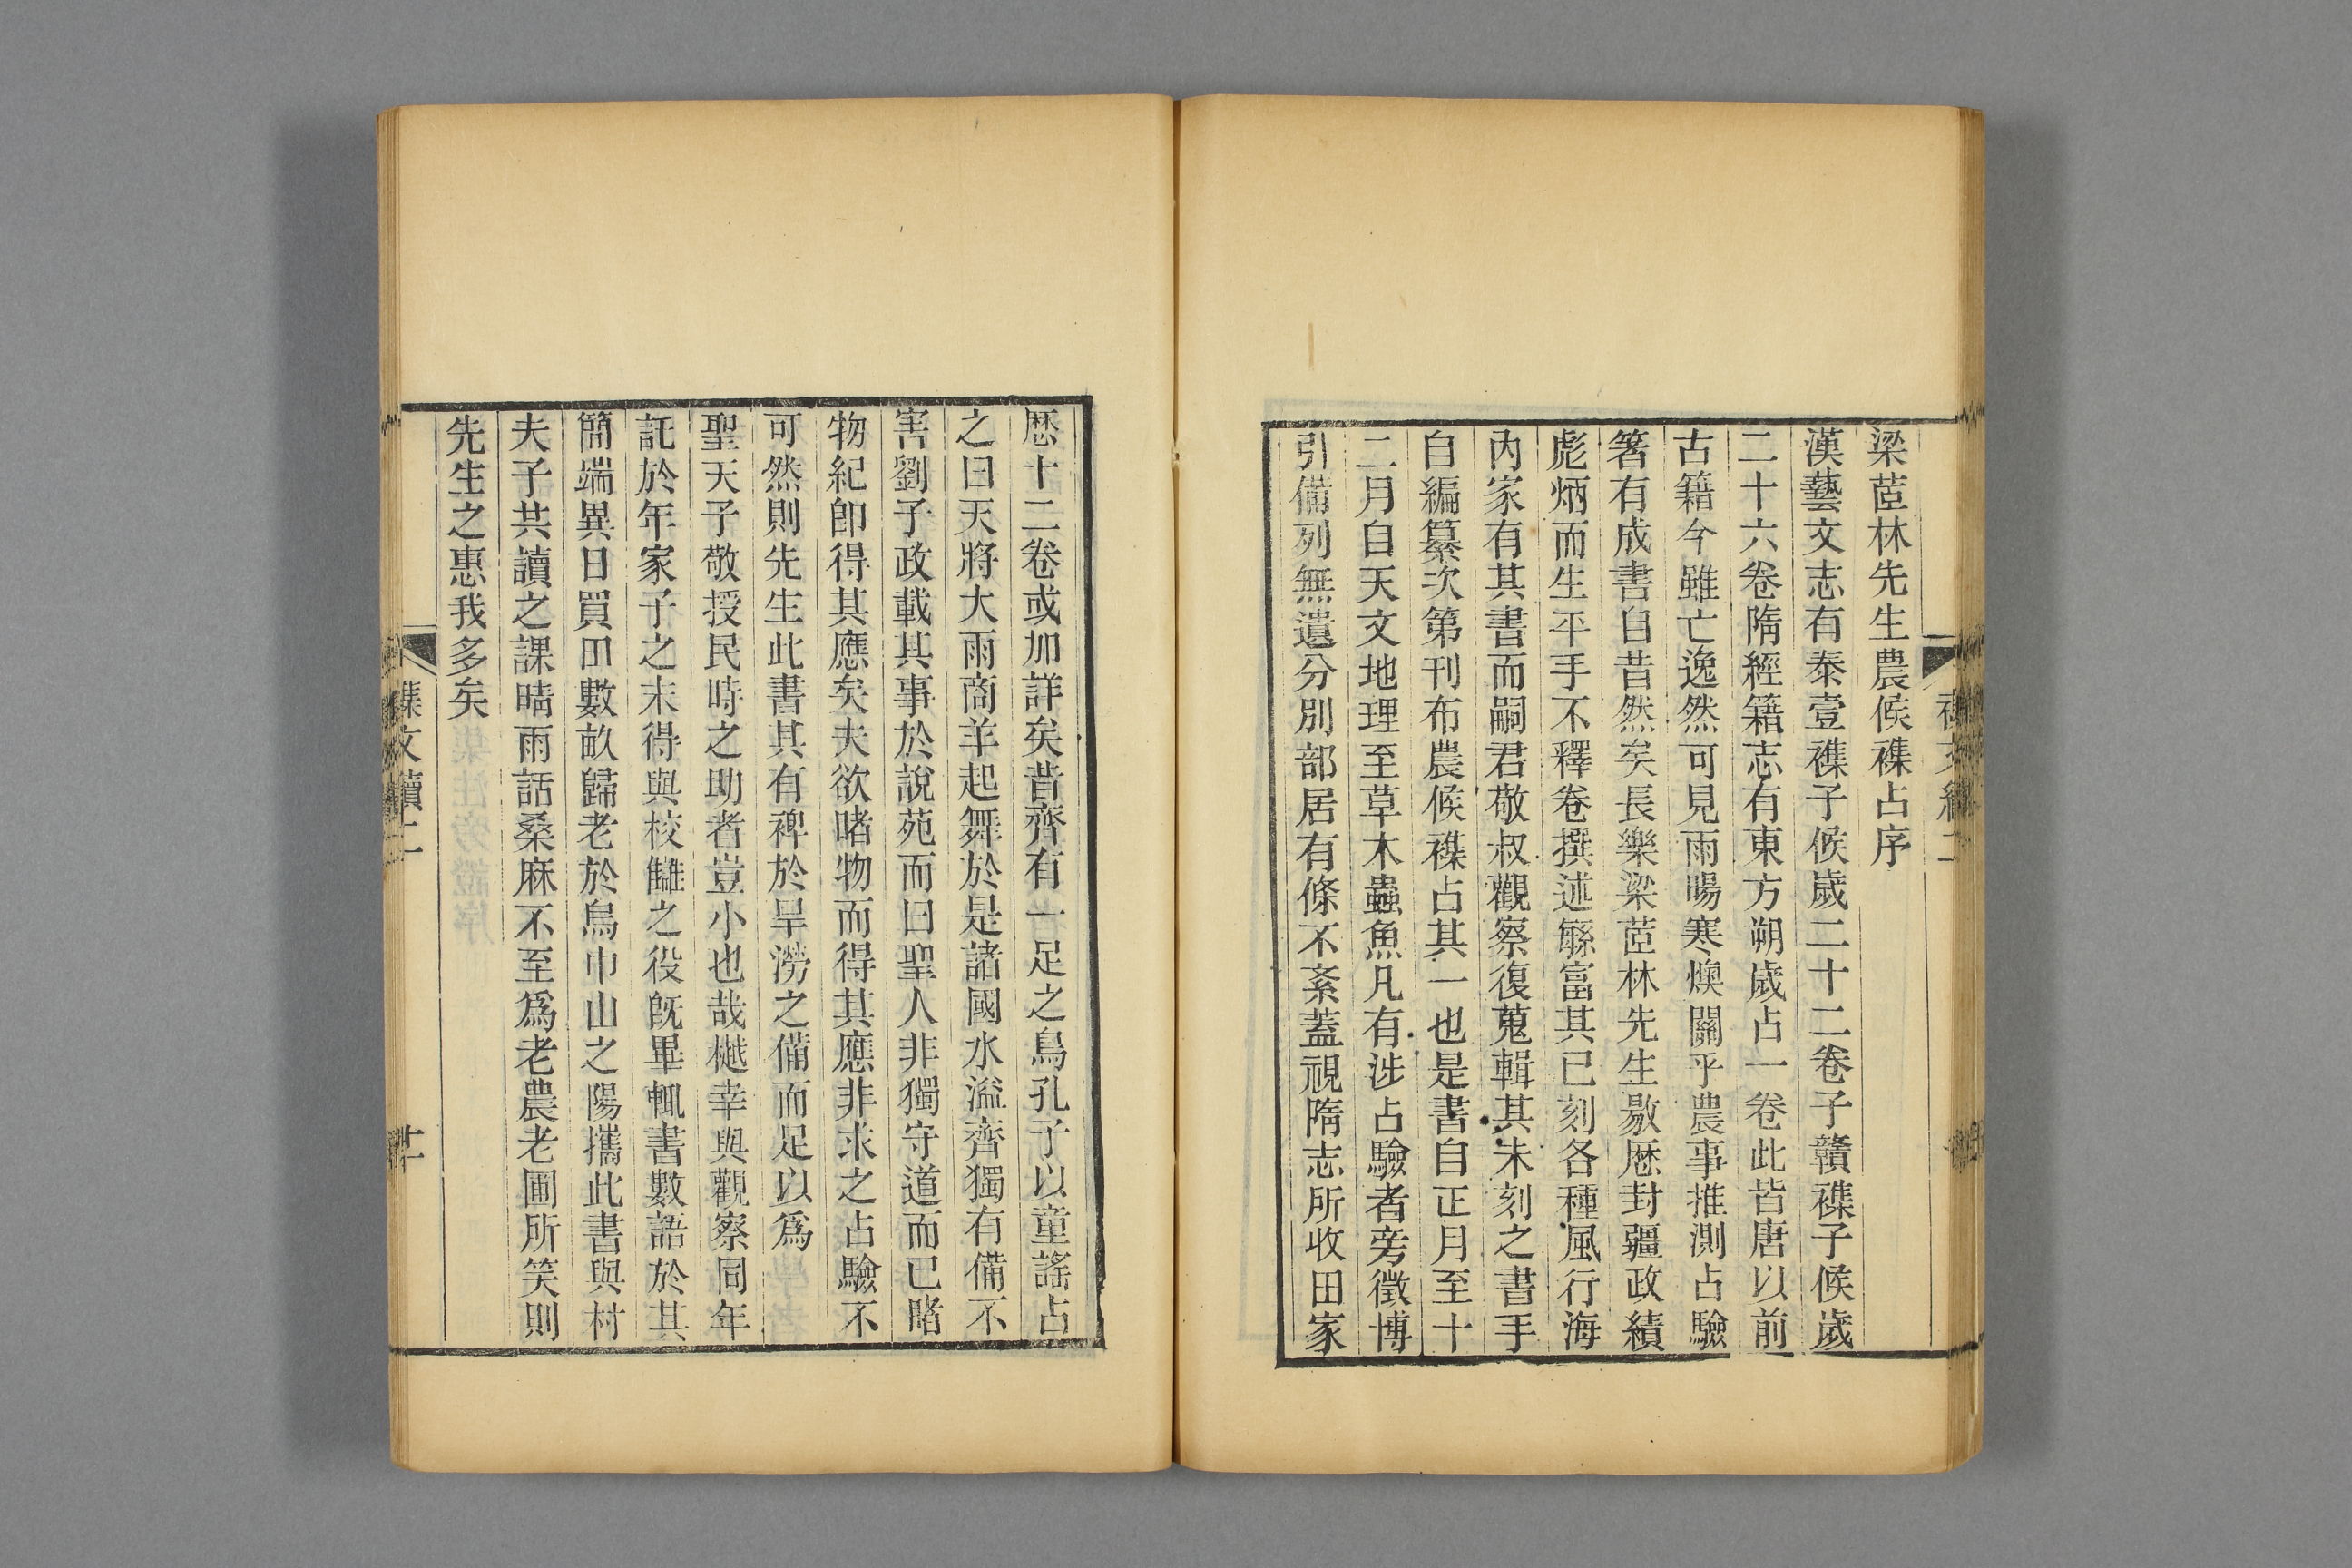 梁茝林先生農候襍占序
漢藝文志有泰壹襍子候歲二十二卷子贛襍子候歲
二十六卷隋經籍志有東方朔歲占一卷此皆唐以前
古籍今雖亡逸然可見雨暘寒燠關乎農事推測占驗
箸有成書自昔然矣長樂梁茝林先生敭歴封疆政績
彪炳而生平手不釋卷撰述緐富其已刻各種風行海
內家有其書而嗣君敬叔觀察復蒐輯其未刻之書手
自編纂次第刊布農候襍占其一也是書自正月至十
二月自天文地理至草木蟲魚凡有涉占驗者旁徵博
引備列無遺分別部居有條不紊蓋視隋志所收田家
歴十二卷或加詳矣昔齊有一足之鳥孔子以童謠占
之曰天將大雨商羊起舞於是諸國水溢齊獨有備不
害劉子政載其事於說苑而曰聖人非獨守道而已睹
物紀卽得其應矣夫欲睹物而得其應非求之占驗不
可然則先生此書其有裨於旱澇之備而足以爲
聖天子敬授民時之助者豈小也哉樾幸與觀察同年
託於年家子之末得與校讎之役旣畢輒書數語於其
簡端異日買田數畝歸老於烏巾山之陽攜此書與村
夫子共讀之課晴雨話桑麻不至爲老農老圃所笑則
先生之惠我多矣
襍文續二